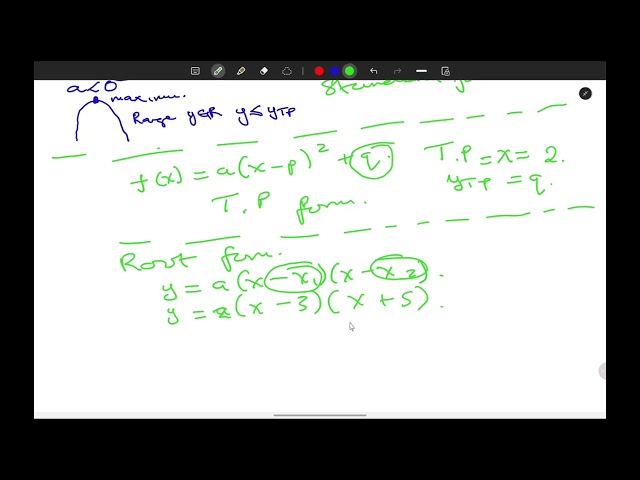 a<0
maximum.
Range y∈R y≤yTP
f(x) = a(x-p)² + q.
T.P = x = 2.
yTP = q.
T.P form.
Root form.
y = a(x-x₁)(x-x₂).
y = a(x-3)(x+5).